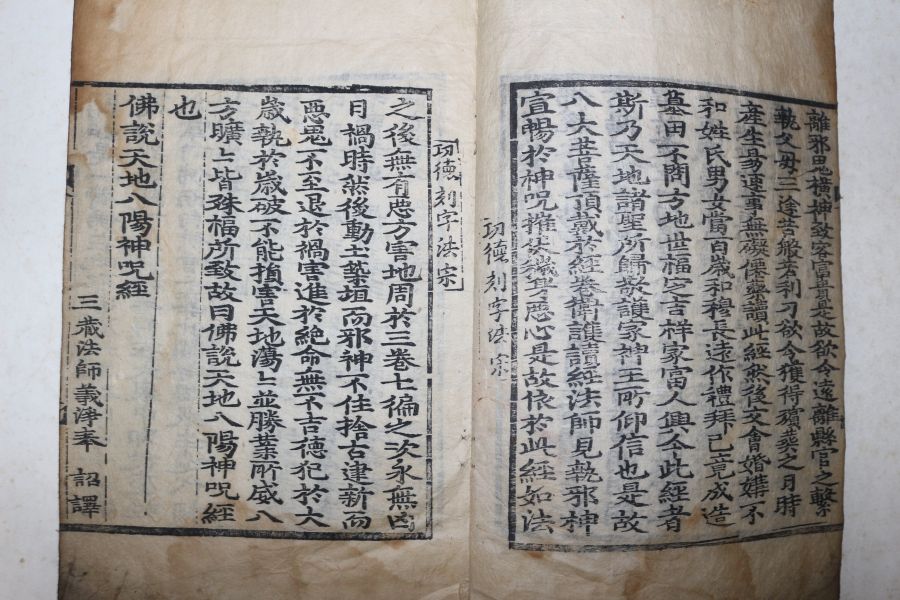 離邪鬼橫神致客富貴是故欲令遠離縣官之繫
執父母三途苦般若利刀欲令獲得殯葬之月時
産生易運事無礙儻察讀此經然後交會婚媾不
和姓氏男女當百歲和穆長遠作禮拜已竟成造
墓田不問方地世福安吉祥家富人興今此經者
斯乃天地諸聖所歸敬護家神王所仰信也是故
八大菩薩頂戴於經卷衛護讀經法師見執邪神
宣暢於神呪摧其惡心是故依於此經如法
功德刻字法宗
功德刻字法宗
之後無有惡方害地周於三卷七徧之次永無凶
日禍時然後動土築垣而邪神不住捨古建新而
惡鬼不至退於禍害進於絶命無不吉德犯於大
歲執於歲破不能損害天地蕩〻並勝業所感八
方曠〻皆殊福所致故曰佛說天地八陽神呪經
也
佛說天地八陽神呪經
三藏法師義淨奉 詔譯